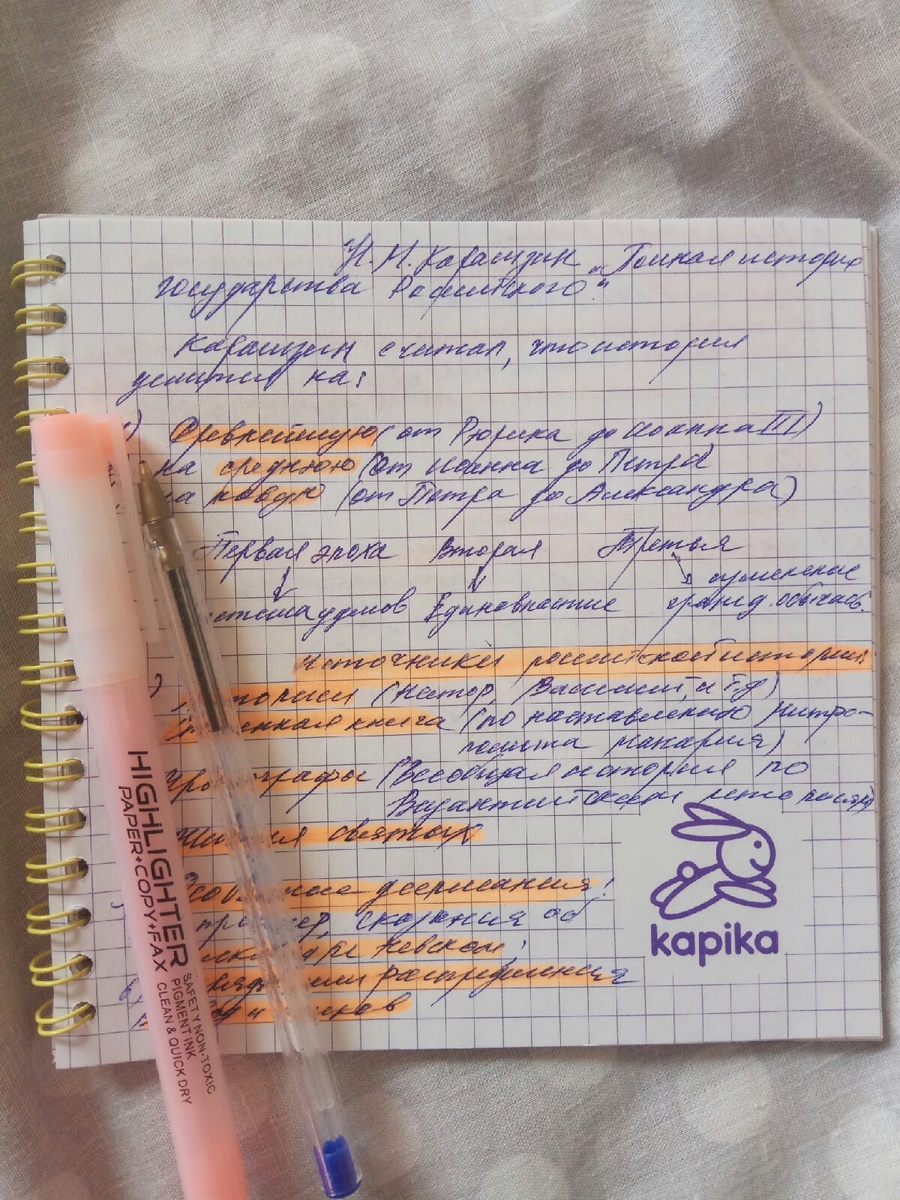 Н. М. Карамзин „Полная история
государства Российского“
Карамзин считал, что история
делится на:
1) Древнейшую (от Рюрика до Иоанна III)
на среднюю (от Иоанна до Петра
на новую (от Петра до Александра)
Первая эпоха Вторая Третья
система уделов Единовластие изменение
гражд. обычаев.
источники российской истории:
летописи (Нестор, Василий и т.д)
книга (по наставлению митро-
полита Макария)
(Всеобщая история по
Византийским летописям
Жития святых
Особенные дееписания!
например, сказания об
Невском;
или распределения
HIGHLIGHTER
PAPER+COPY+FAX
SAFETY NON-TOXIC
PIGMENT INK
CLEAN & QUICK DRY
kapika